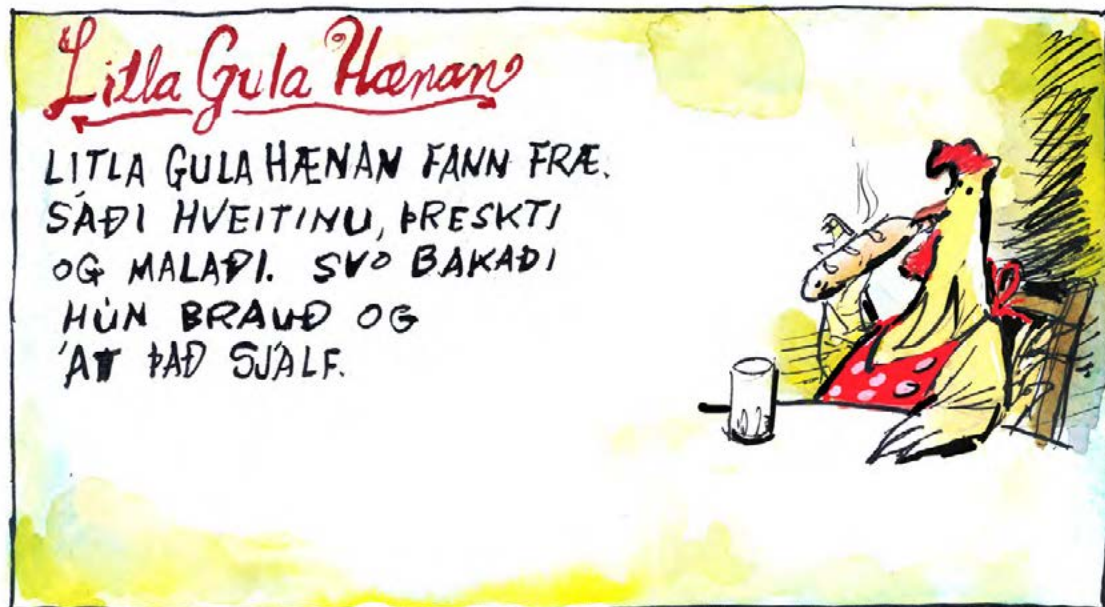 Litla Gula Hænan
LITLA GULA HÆNAN FANN FRÆ.
SÁÐI HVEITINU, ÞRESKTI
OG MALAÐI. SVO BAKAÐI
HÚN BRAUÐ OG
ÁT ÞAÐ SJÁLF.